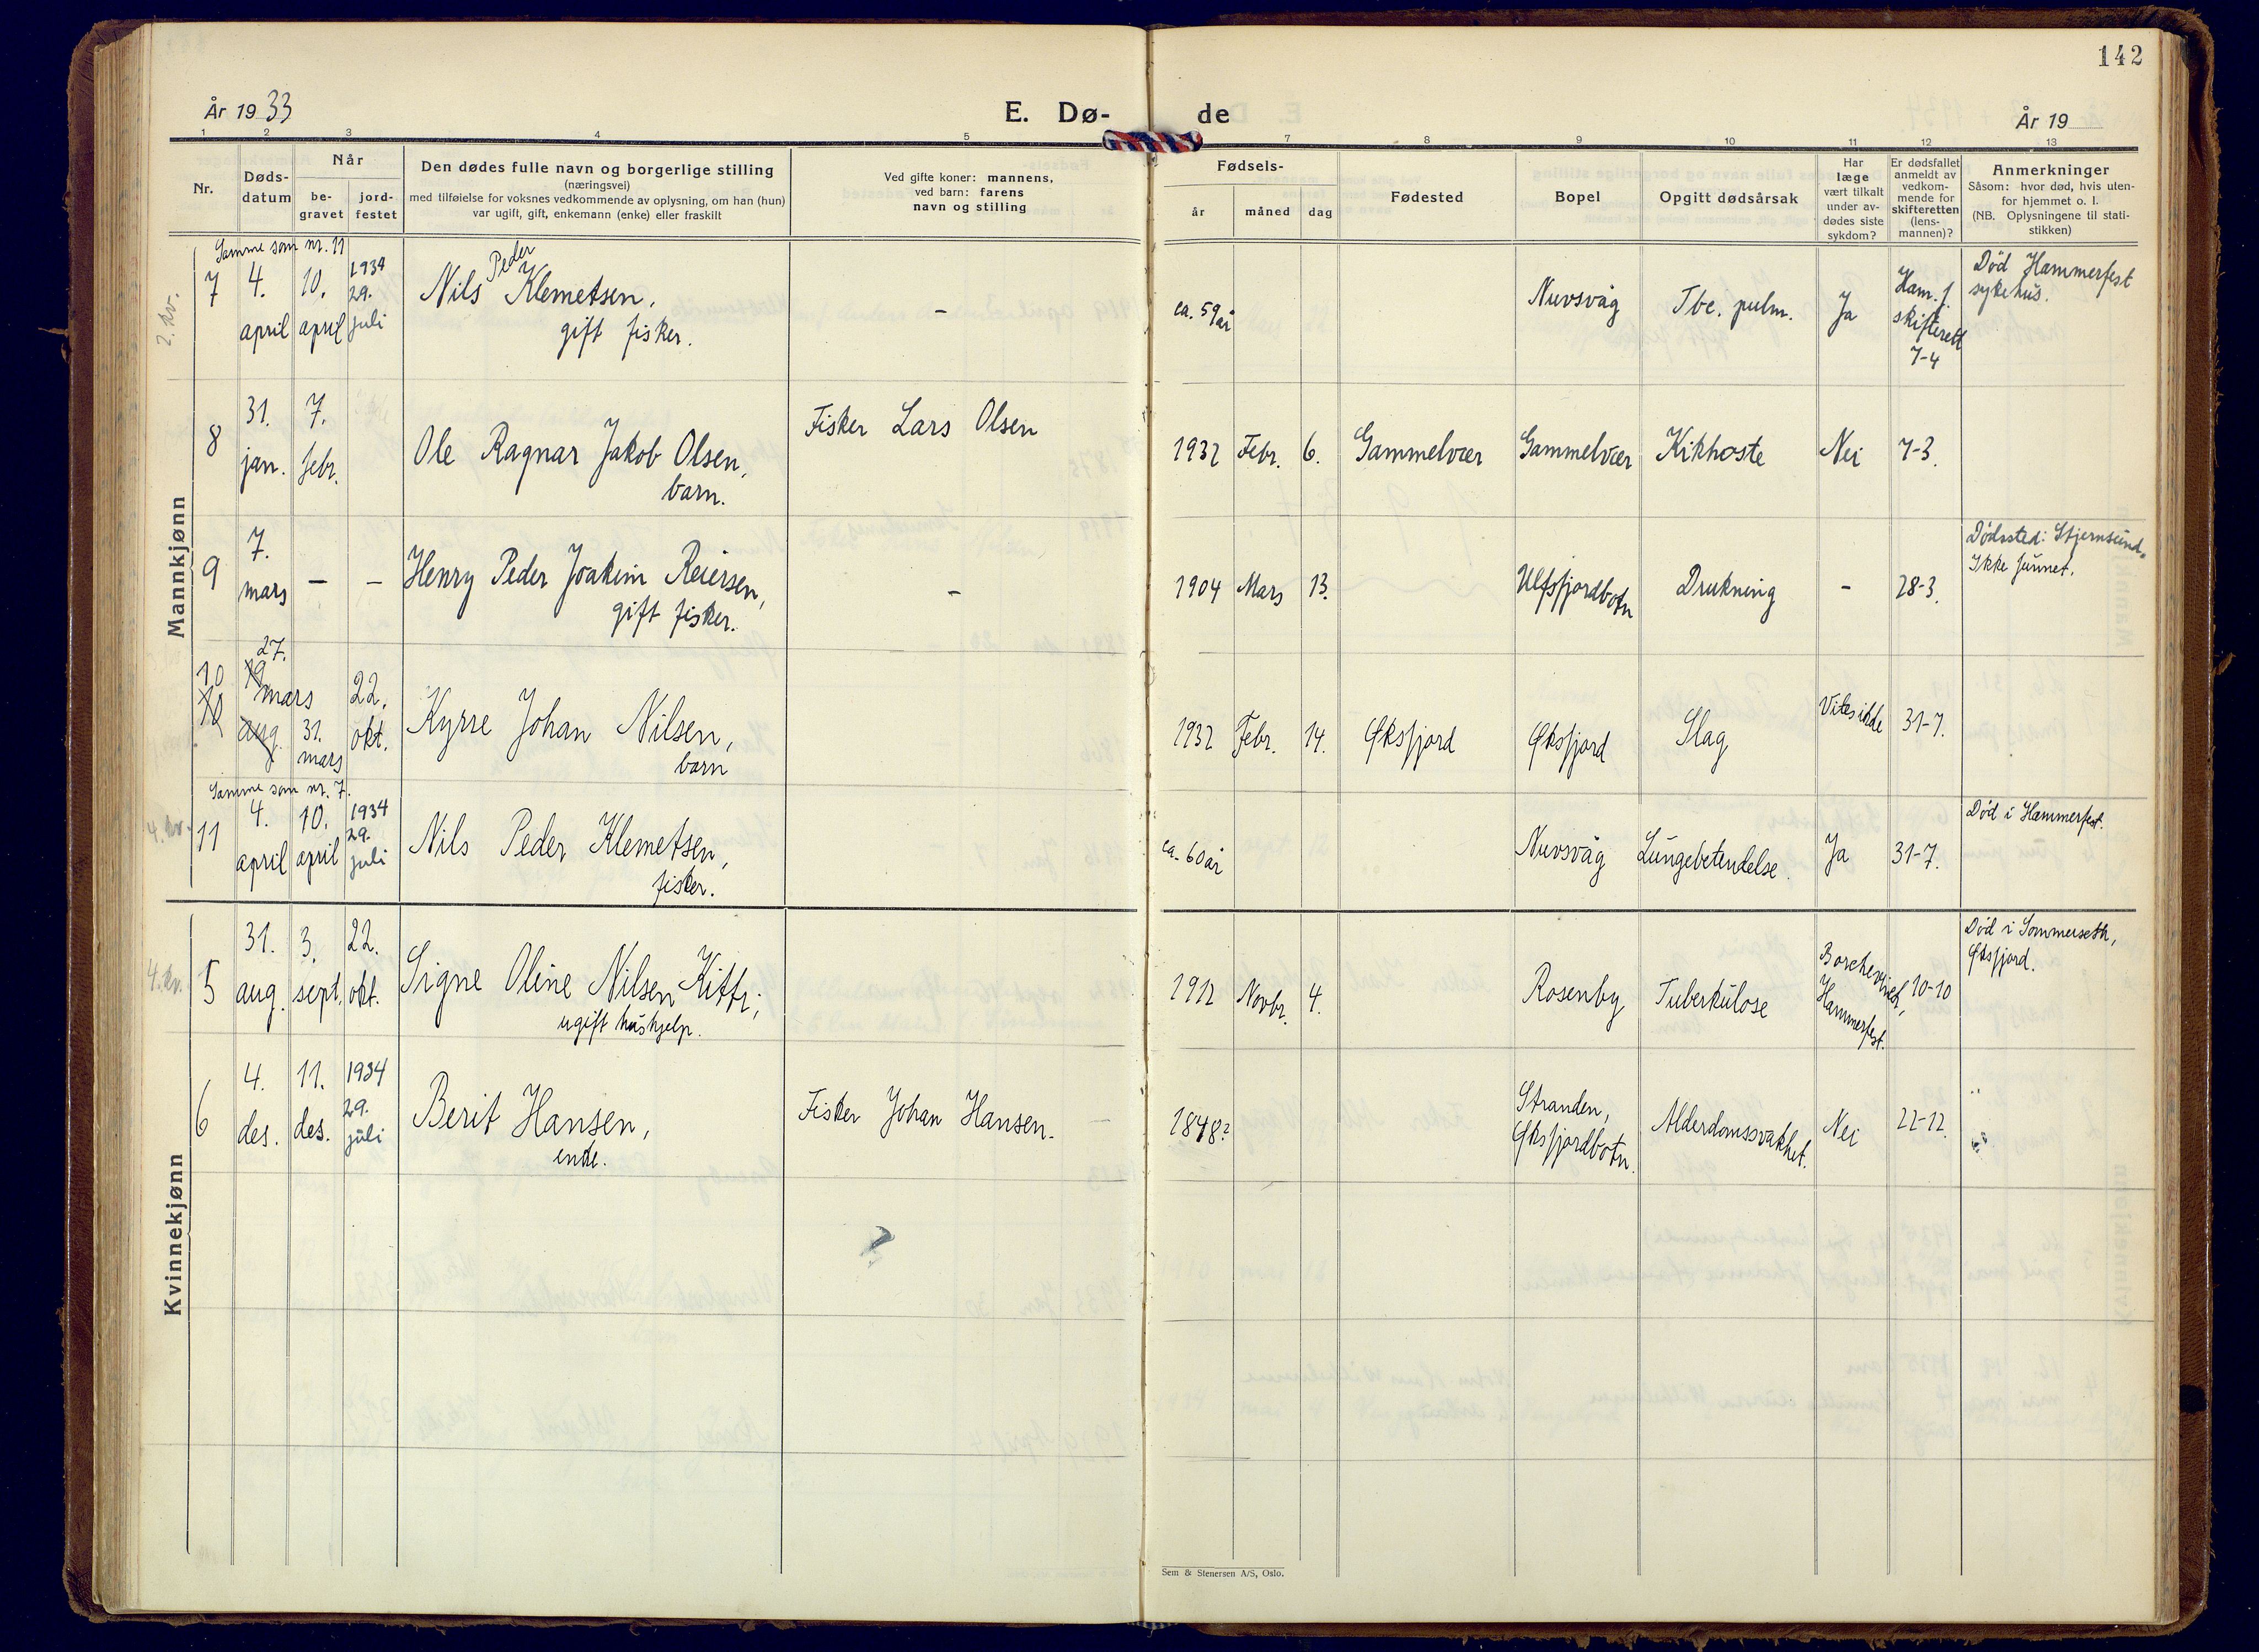 142
År 1933
E. Dø- de
År 19
1 2 3 4 5 7 8 9 10 11 12 13
Nr.
Døds-
datum
Når
be-
gravet
jord-
festet
Den dødes fulle navn og borgerlige stilling
(næringsvei)
med tilføielse for voksnes vedkommende av oplysning, om han (hun)
var ugift, gift, enkemann (enke) eller fraskilt
Ved gifte koner: mannens,
ved barn: farens
navn og stilling
Fødsels-
år måned dag
Fødested
Bopel
Opgitt dødsårsak
Har
læge
vært tilkalt
under av-
dødes siste
sykdom?
Er dødsfallet
anmeldt av
vedkom-
mende for
skifteretten
(lens-
mannen)?
Anmerkninger
Såsom: hvor død, hvis uten-
for hjemmet o. l.
(NB. Oplysningene til stati-
stikken)
Mannkjønn
2. kv.
Samme som nr. 11
7 4. april 10. april 1934 29. juli Nils Peder Klemetsen, gift fisker. - ca. 59 år Nuvsvåg Tbc. pulm. Ja Ham.f. skifterett 7-4 Død Hammerfest sykehus.
8 31. jan. 7. febr. Ole Ragnar Jakob Olsen, barn. Fisker Lars Olsen 1932 Febr. 6. Gammelvær Gammelvær Kikhoste Nei 7-3.
9 7. mars - - Henry Peder Joakim Reiersen, gift fisker. - 1904 Mars 13. Ulfsfjordbotn Drukning - 28-3. Dødssted: Stjernsund. Ikke funnet.
10 10 27. 19. mars aug. 31. mars 22. okt. Kyrre Johan Nilsen, barn 1932 Febr. 14. Øksfjord Øksfjord Slag Vites ikke 31-7.
Samme som nr. 7.
4. kv.
11 4. april 10. april 1934 29. juli Nils Peder Klemetsen, fisker. ca. 60 år Nuvsvåg Lungebetendelse. Ja 31-7. Død i Hammerfest.
Kvinnekjønn
4. kv.
5 31. aug. 3. sept. 22. okt. Signe Oline Nilsen Kitti, ugift hushjelp. 1912 Novbr. 4. Rosenby Tuberkulose Borchgrevink, Hammerfest. 10-10 Død i Sommerseth, Øksfjord.
6 4. des. 11. des. 1934 29. juli Berit Hansen, enke. Fisker Johan Hansen. 1848? Stranden, Øksfjordbotn. Alderdomssvakhet. Nei 22-12.
Sem & Stenersen A/S, Oslo.